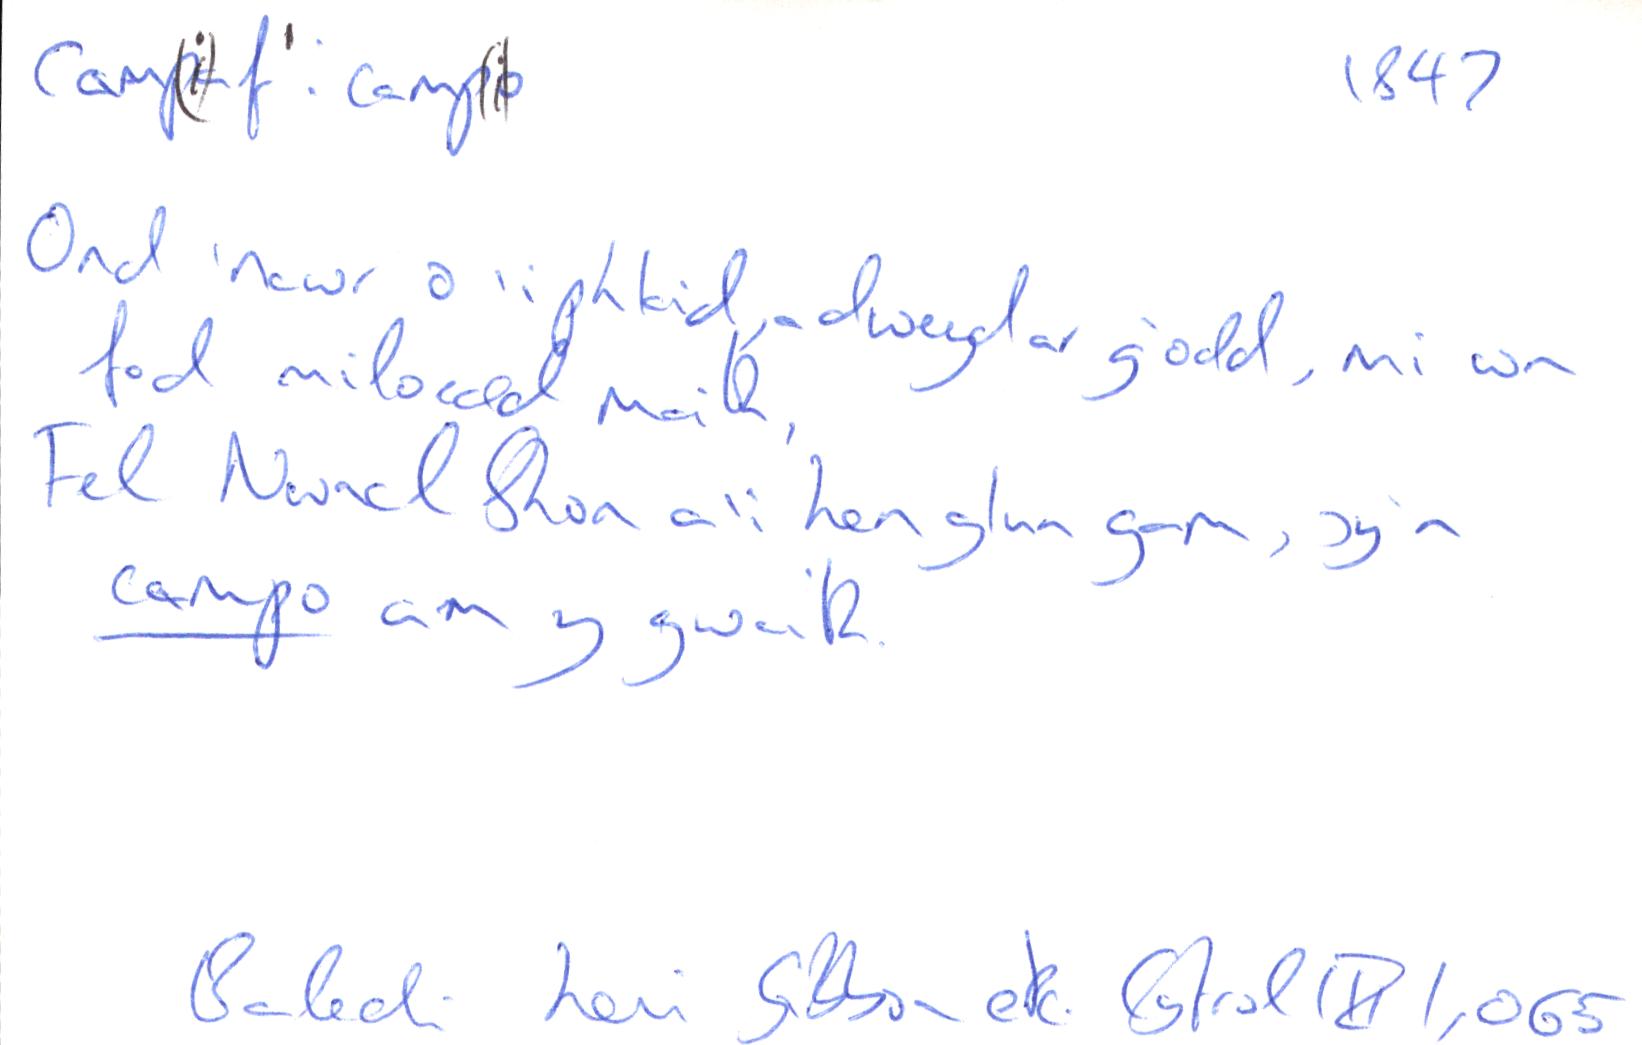 Camp(i)af¹: camp(i)o 1847
Ond 'nawr o'i iphkid, adwerglar g'odd, mi wn
fod miloedd maith,
Fel Newal Shon a'i hen glun gam, sy'n
campo am y gwaith.
Baledi Levi Gibbon etc. Cyfrol IV 1,065